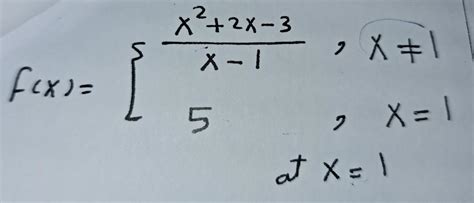 f(x) = { x²+2x-3 / x-1 , x ≠ 1
5 , x = 1
at x = 1